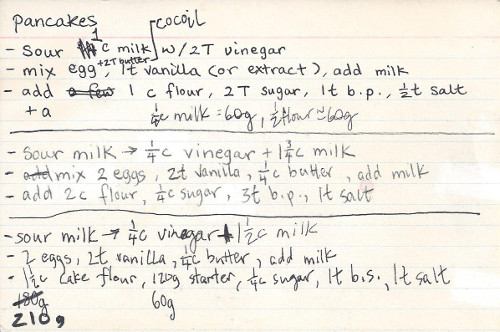 pancakes cocoil
- sour 1 c milk w/ 2T vinegar
- mix egg, +2T butter, 1t vanilla (or extract), add milk
- add a few 1 c flour, 2T sugar, 1t b.p., ½t salt
+ a ¼c milk = 60g, ½ flour = 60g
- Sour milk → ¼c vinegar + 1¾c milk
- add mix 2 eggs, 2t vanilla, ¼c butter, add milk
- add 2c flour, ¼c sugar, 3t b.p., 1t salt
- sour milk → ¼c vinegar + 1½c milk
- 2 eggs, 2t vanilla, ¼c butter, add milk
- 1½c cake flour, 120g starter, ¼c sugar, 1t b.s., 1t salt
180g 60g
210g